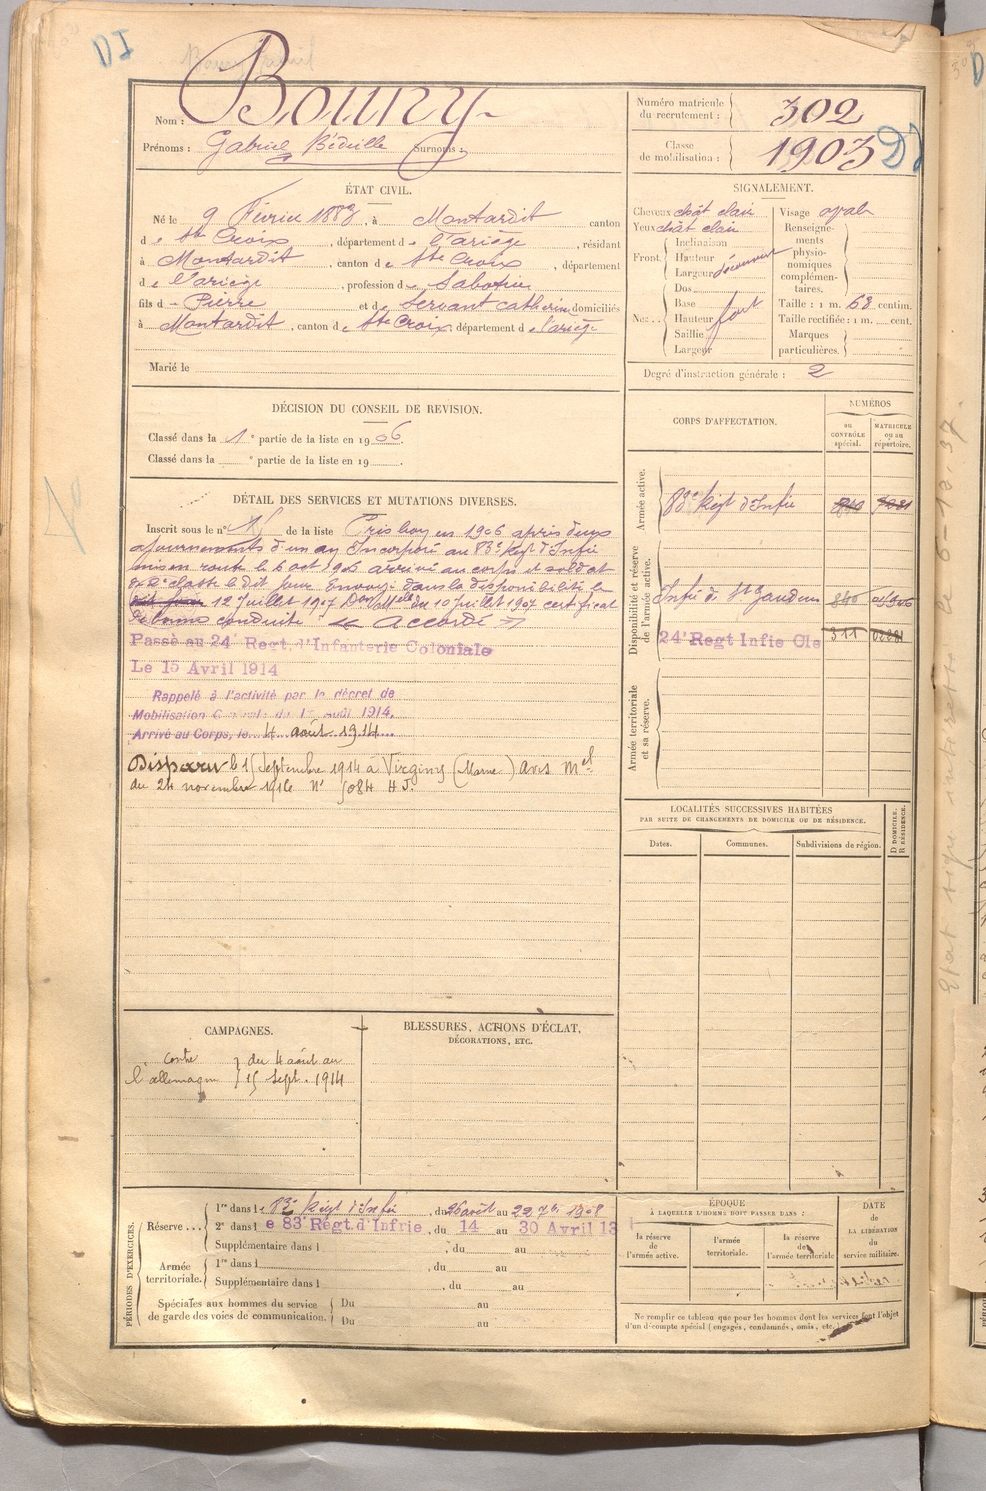 DI
Nom : Boury
Prénoms : Gabriel Surnoms :
Numéro matricule du recrutement : 302
Classe de mobilisation : 1903
ÉTAT CIVIL.
Né le 9 Février 1883, à Montardit canton
de Ste Croix, département de l'ariège, résidant
à Montardit, canton de Ste Croix, département
de l'ariège, profession de Sabotier
fils de Pierre et de Servant catherine domiciliés
à Montardit, canton de Ste Croix, département de l'ariège
Marié le
SIGNALEMENT.
Cheveux chât clair Visage oval
Yeux chât clair Renseigne-
ments
physio-
nomiques
complémen-
taires.
Front. Inclinaison
Hauteur
Largeur découvert
Nez.. Dos
Base fort
Hauteur
Saillie
Largeur
Taille : 1 m. 68 centim.
Taille rectifiée : 1 m. cent.
Marques
particulières.
Degré d'instruction générale : 2
DÉCISION DU CONSEIL DE REVISION.
Classé dans la 1e partie de la liste en 1906.
Classé dans la e partie de la liste en 19 .
CORPS D'AFFECTATION.
NUMÉROS
AU CONTRÔLE spécial.
MATRICULE ou au répertoire.
Armée active.
83e Regt d'Infie
Disponibilité et réserve de l'armée active.
Infie de St Gaudens 840
24e Regt Infie Cle 311
Armée territoriale et sa réserve.
DÉTAIL DES SERVICES ET MUTATIONS DIVERSES.
Inscrit sous le n° de la liste Pris bon en 1906 après deux
ajournements d'un an Incorporé au 83e Regt d'Infie
mis en route le 6 oct 1906 arrivé au corps et soldat
de 2e classe le dit jour Envoyé dans la disponibilité le
dit jour 12 Juillet 1907 du 10 juillet 1907 certificat
de bonne conduite « Accordé »
Passé au 24e Regt. d'Infanterie Coloniale
Le 15 Avril 1914
Rappelé à l'activité par le décret de
Mobilisation Générale du 1er Août 1914.
Arrivé au Corps, le 4 août 1914
Disparu le 15 Septembre 1914 à Virginy (Marne) avis Mel
du 24 novembre 1916 N° 5084 HJ.
LOCALITÉS SUCCESSIVES HABITÉES
PAR SUITE DE CHANGEMENTS DE DOMICILE OU DE RÉSIDENCE.
Dates. Communes. Subdivisions de région. D DOMICILE. R RÉSIDENCE.
CAMPAGNES.
contre } du 4 août au
l'allemagne } 15 Sept. 1914
BLESSURES, ACTIONS D'ÉCLAT,
DÉCORATIONS, ETC.
PÉRIODES D'EXERCICES.
Réserve... 1re dans le 83e Regt d'Infie, du 26 août au 22 7bre 1908
2e dans le 83e Régt. d'Infrie, du 14 au 30 Avril 13
Supplémentaire dans l , du au
Armée territoriale. 1re dans l du au
Supplémentaire dans l , du au
Spéciales aux hommes du service
de garde des voies de communication. Du au
Du au
ÉPOQUE
À LAQUELLE L'HOMME DOIT PASSER DANS :
la réserve de l'armée active.
l'armée territoriale.
la réserve de l'armée territoriale
DATE de LA LIBÉRATION du service militaire.
Ne remplir ce tableau que pour les hommes dont les services font l'objet
d'un décompte spécial (engagés, condamnés, omis, etc.)